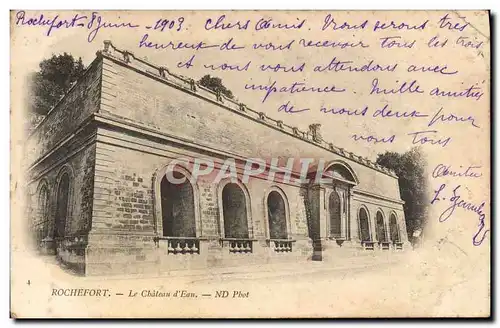 Rochefort 8 juin - 1903. Chers Amis. Nous serons très
heureux de vous recevoir tous les trois
et nous vous attendons avec
impatience. Mille amitiés
de nous deux pour
vous tous
Amitiés
L.
CPARAMA
4
ROCHEFORT. — Le Château d'Eau. — ND Phot